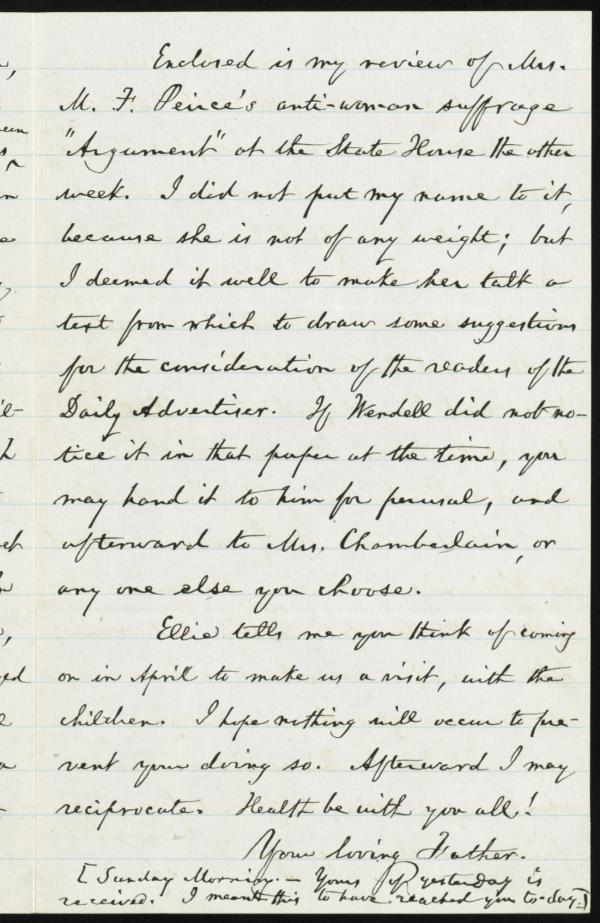 Enclosed is my review of Mrs.
M. F. Peirce's anti-woman suffrage
"Argument" at the State House the other
week. I did not put my name to it,
because she is not of any weight; but
I deemed it well to make her talk a
text from which to draw some suggestions
for the consideration of the readers of the
Daily Advertiser. If Wendell did not no-
tice it in that paper at the time, you
may hand it to him for perusal, and
afterward to Mrs. Chamberlain, or
any one else you choose.
Ellie tells me you think of coming
on in April to make us a visit, with the
children. I hope nothing will occur to pre-
vent your doing so. Afterward I may
reciprocate. Health be with you all!
Your loving Father.
[Sunday Morning. — Yours of yesterday is
received. I meant this to have reached you to-day.]